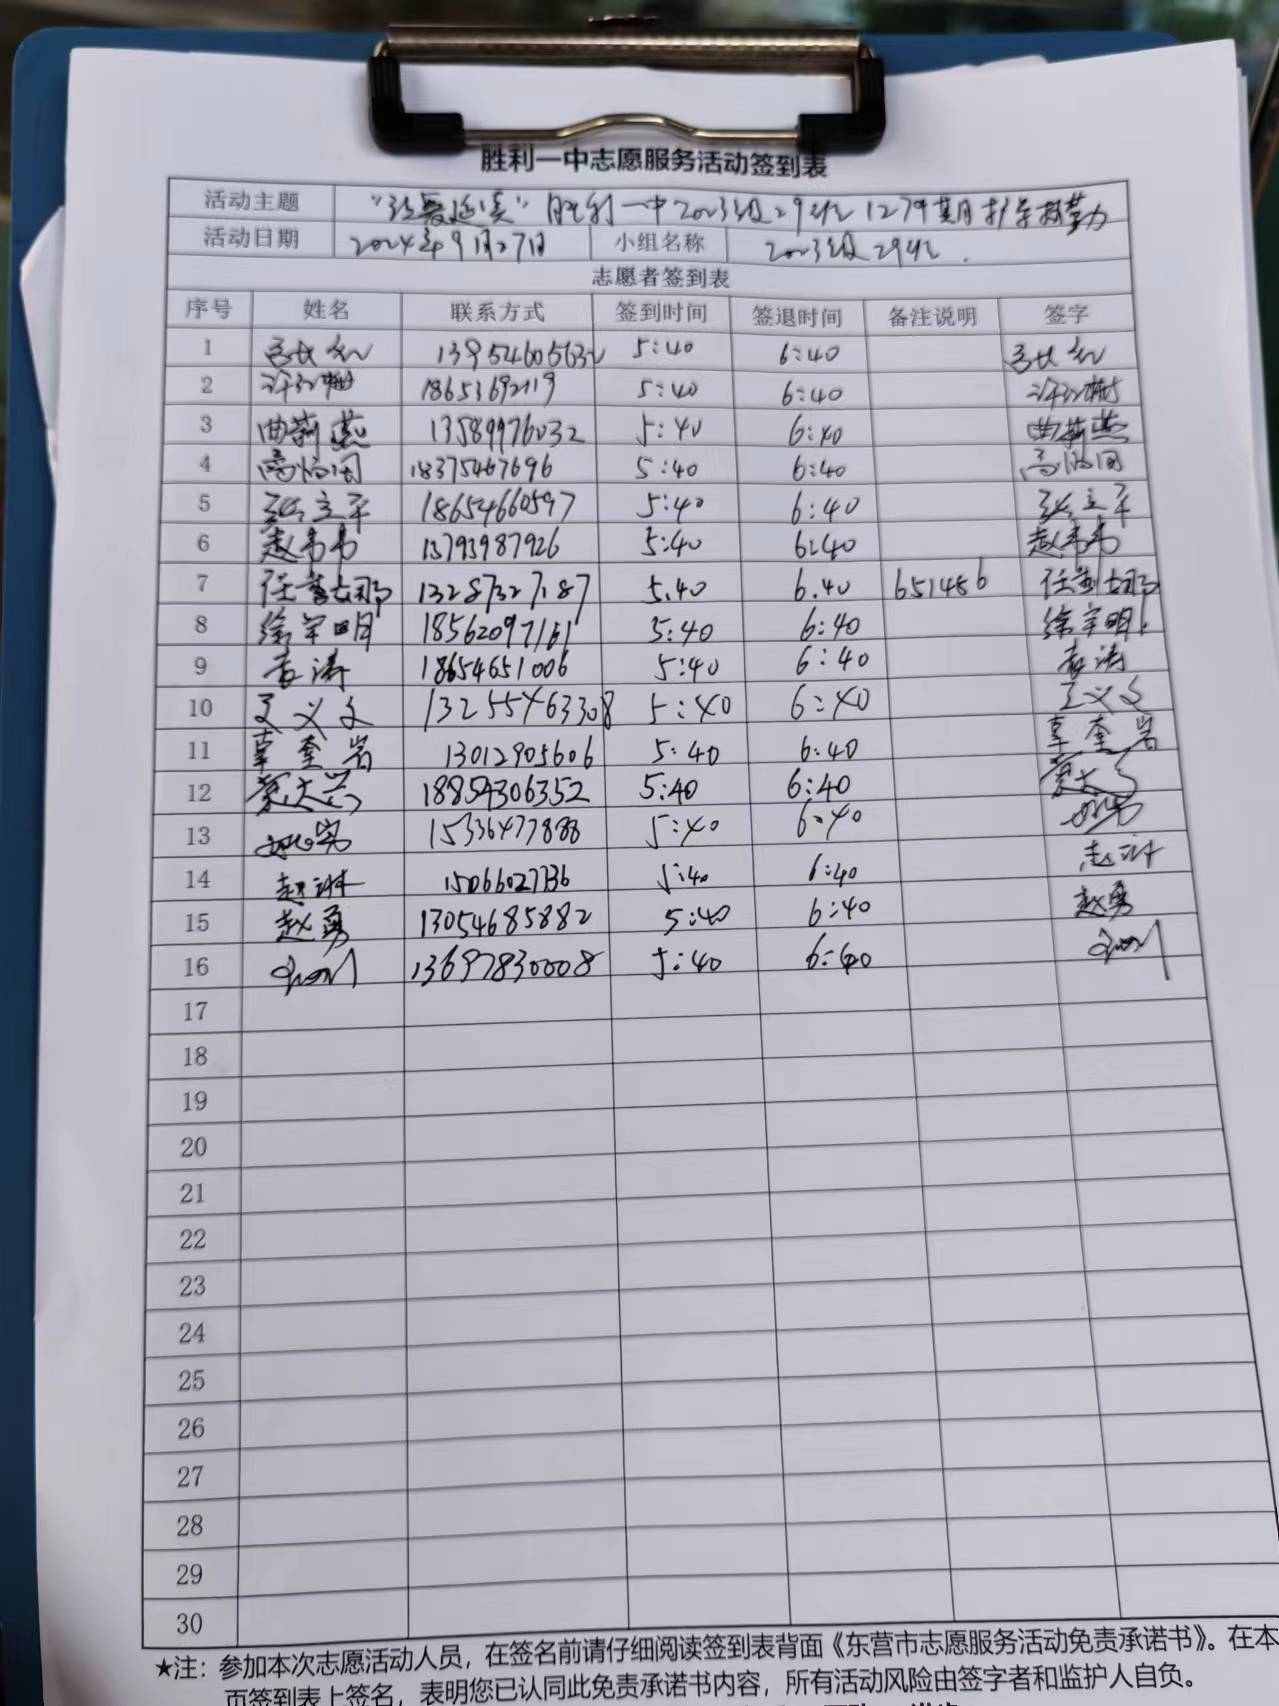 胜利一中志愿服务活动签到表
活动主题 胜利一中2023级29班 1279期护学
活动日期 2024年9月27日 小组名称 2023级29班.
志愿者签到表
序号 姓名 联系方式 签到时间 签退时间 备注说明 签字
1 5:40 6:40
2 18653692119 5:40 6:40
3 曲莉燕 13589976032 5:40 6:40 曲莉燕
4 18375467696 5:40 6:40
5 张立平 18654660597 5:40 6:40 张立平
6 赵韦韦 13793987926 5:40 6:40 赵韦韦
7 13287327187 5.40 6.40 651486
8 徐宇明 18562097161 5:40 6:40 徐宇明
9 袁涛 18654651006 5:40 6:40 袁涛
10 王义文 13255463308 5:40 6:40 王义文
11 辜奎岩 13012905606 5:40 6:40 辜奎岩
12 18854306352 5:40 6:40
13 15336477888 5:40 6:40
14 赵琳 15066027736 5:40 6:40 赵琳
15 赵勇 13054685882 5:40 6:40 赵勇
16 13697830008 5:40 6:40
17
18
19
20
21
22
23
24
25
26
27
28
29
30
★注：参加本次志愿活动人员，在签名前请仔细阅读签到表背面《东营市志愿服务活动免责承诺书》。在本
页签到表上签名，表明您已认同此免责承诺书内容，所有活动风险由签字者和监护人自负。